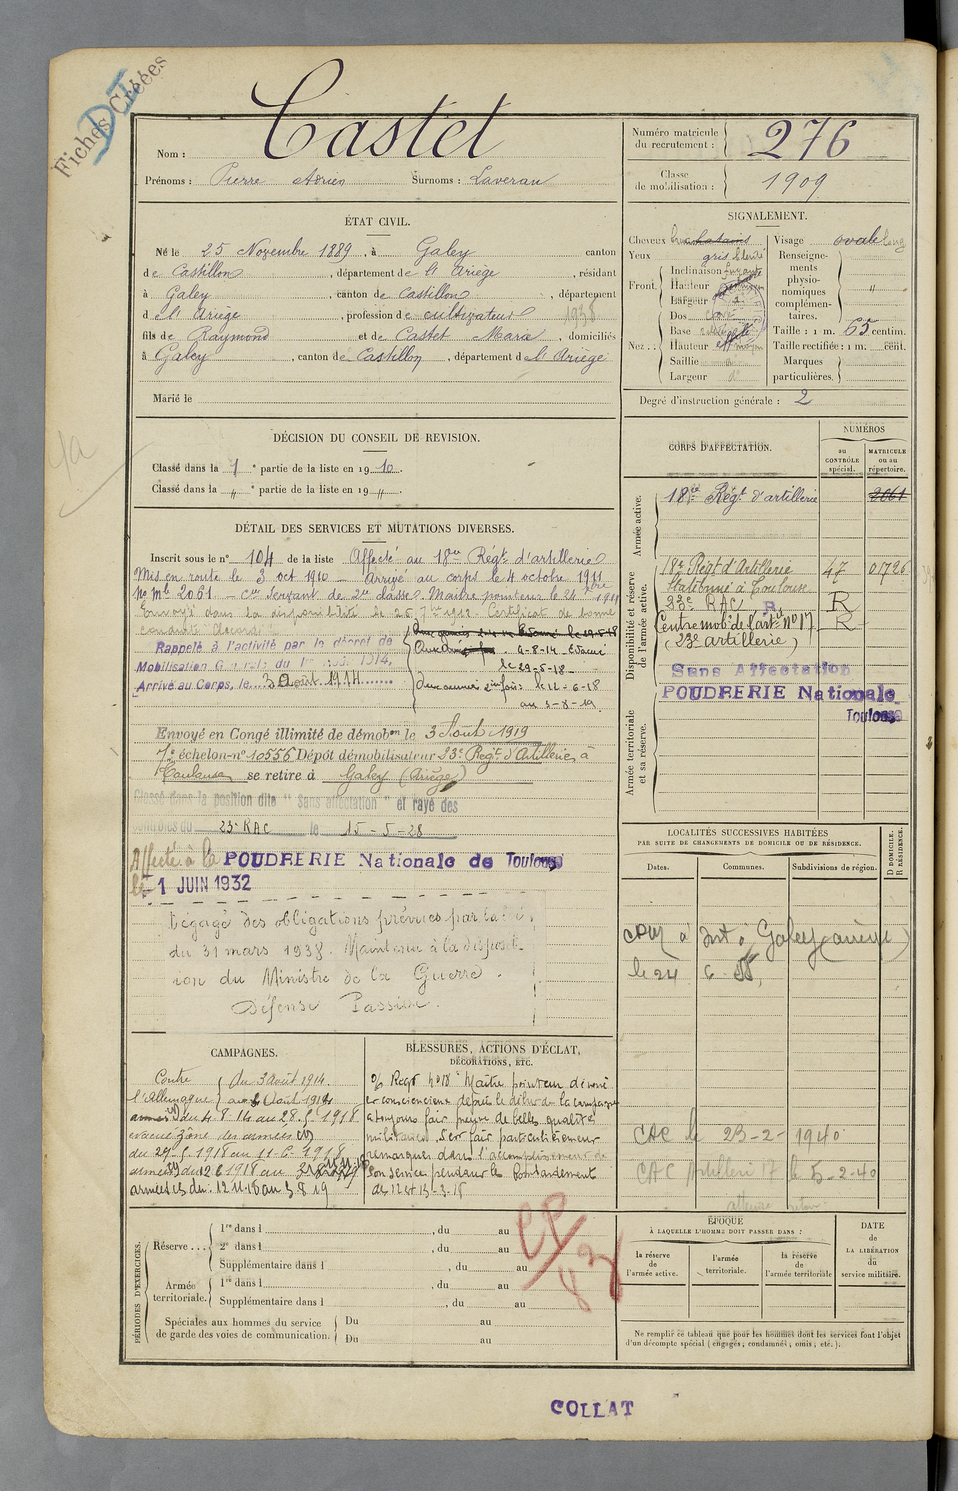 Fiches Créées
Castet
Nom :
Prénoms : Pierre Surnoms : Laveran
Numéro matricule du recrutement : 276
Classe de mobilisation : 1909
ÉTAT CIVIL.
Né le 25 Novembre 1889, à Galey canton
de Castillon, département de l'Ariège, résidant
à Galey, canton de Castillon, département
d e l'Ariège, profession de cultivateur 1938
fils de Raymond et de Castet Maria, domiciliés
à Galey, canton de Castillon, département de l'Ariège
Marié le
SIGNALEMENT.
Cheveux chatains
Yeux gris
Front. Inclinaison fuyante
Hauteur
Largeur
Nez : Dos
Base
Hauteur moyen
Saillie
Largeur
Visage ovale long
Renseignements physionomiques complémentaires. "
Taille : 1 m. 65 centim.
Taille rectifiée : 1 m. cent.
Marques particulières.
Degré d'instruction générale : 2
DÉCISION DU CONSEIL DE REVISION.
Classé dans la 1 e partie de la liste en 1910.
Classé dans la " e partie de la liste en 19 ".
DÉTAIL DES SERVICES ET MUTATIONS DIVERSES.
Inscrit sous le n° 104 de la liste Affecté au 18me Régt d'artillerie
Mis en route le 3 oct 1910 – Arrivé au corps le 4 octobre 1911
No mle 2061 – Cer Servant de 2me classe. Maître pointeur le 21 1911
Envoyé dans la disponibilité le 25 7bre 1912. Certificat de bonne
conduite Accordé
Rappelé à l'activité par le décret de
Mobilisation Générale du 1er Août 1914,
Arrivé au Corps, le 3 Août 1914
Aux armées 4-8-14 – Evacué
le 29-5-18
Aux armées 2me fois : le 12-6-18
au 3-8-19
Envoyé en Congé illimité de démobon le 3 Août 1919
7e échelon-n° 10556 Dépôt démobilisateur 23e Régt d'Artillerie à
Toulouse se retire à Galey (Ariège)
Classé dans la position dite " Sans affectation " et rayé des
contrôles du 23e RAC le 15-5-28
Affecté à la POUDRERIE Nationale de Toulouse
le 1 JUIN 1932
Dégagé des obligations prévues par la loi
du 31 mars 1938. Maintenu à la disposit-
ion du Ministre de la Guerre.
Défense Passive.
CORPS D'AFFECTATION.
NUMÉROS
au CONTRÔLE spécial.
MATRICULE ou au répertoire.
Armée active.
18me Régt d'artillerie 2061
Disponibilité et réserve de l'armée active.
18e Régt d'Artillerie 47 01726
Stationné à Toulouse
23e RAC R R
Centre mob. de l'artie n° 17 R
(23e artillerie)
Sans Affectation
POUDRERIE Nationale
Toulouse
Armée territoriale et sa réserve.
LOCALITÉS SUCCESSIVES HABITÉES
PAR SUITE DE CHANGEMENTS DE DOMICILE OU DE RÉSIDENCE.
Dates. Communes. Subdivisions de région.
D DOMICILE. R RÉSIDENCE.
à Galey (ariège)
le 24 6
CAC le 23-2-1940
CAC Artillerie 17 le 5-2-40
CAMPAGNES.
Contre l'Allemagne
du 3 août 1914
au
du 4 8 14 au 28 5 1918
évacué zône des armées
du 29-5-1918 au 11-6-1918
armées du 12 6 1918 au
armées du 12.11.18 au 3 8 19
BLESSURES, ACTIONS D'ÉCLAT,
DÉCORATIONS, ETC.
Maître pointeur dévoué
et consciencieux depuis le début de la campagne
a toujours fait preuve de belles qualités
militaires. S'est fait particulièrement
remarquer dans l'accomplissement de
son service pendant les bombardement
des 12 et 13-3-18
PÉRIODES D'EXERCICES.
Réserve . . . 1re dans l , du au
2e dans l , du au
Supplémentaire dans l , du au
Armée territoriale. 1re dans l , du au
Supplémentaire dans l , du au
Spéciales aux hommes du service de garde des voies de communication. Du au
Du au
ÉPOQUE
À LAQUELLE L'HOMME DOIT PASSER DANS :
la réserve de l'armée active.
l'armée territoriale.
la réserve de l'armée territoriale
DATE de LA LIBÉRATION du service militaire.
Ne remplir ce tableau que pour les hommes dont les services font l'objet
d'un décompte spécial (engagés ; condamnés ; omis ; etc.).
COLLAT